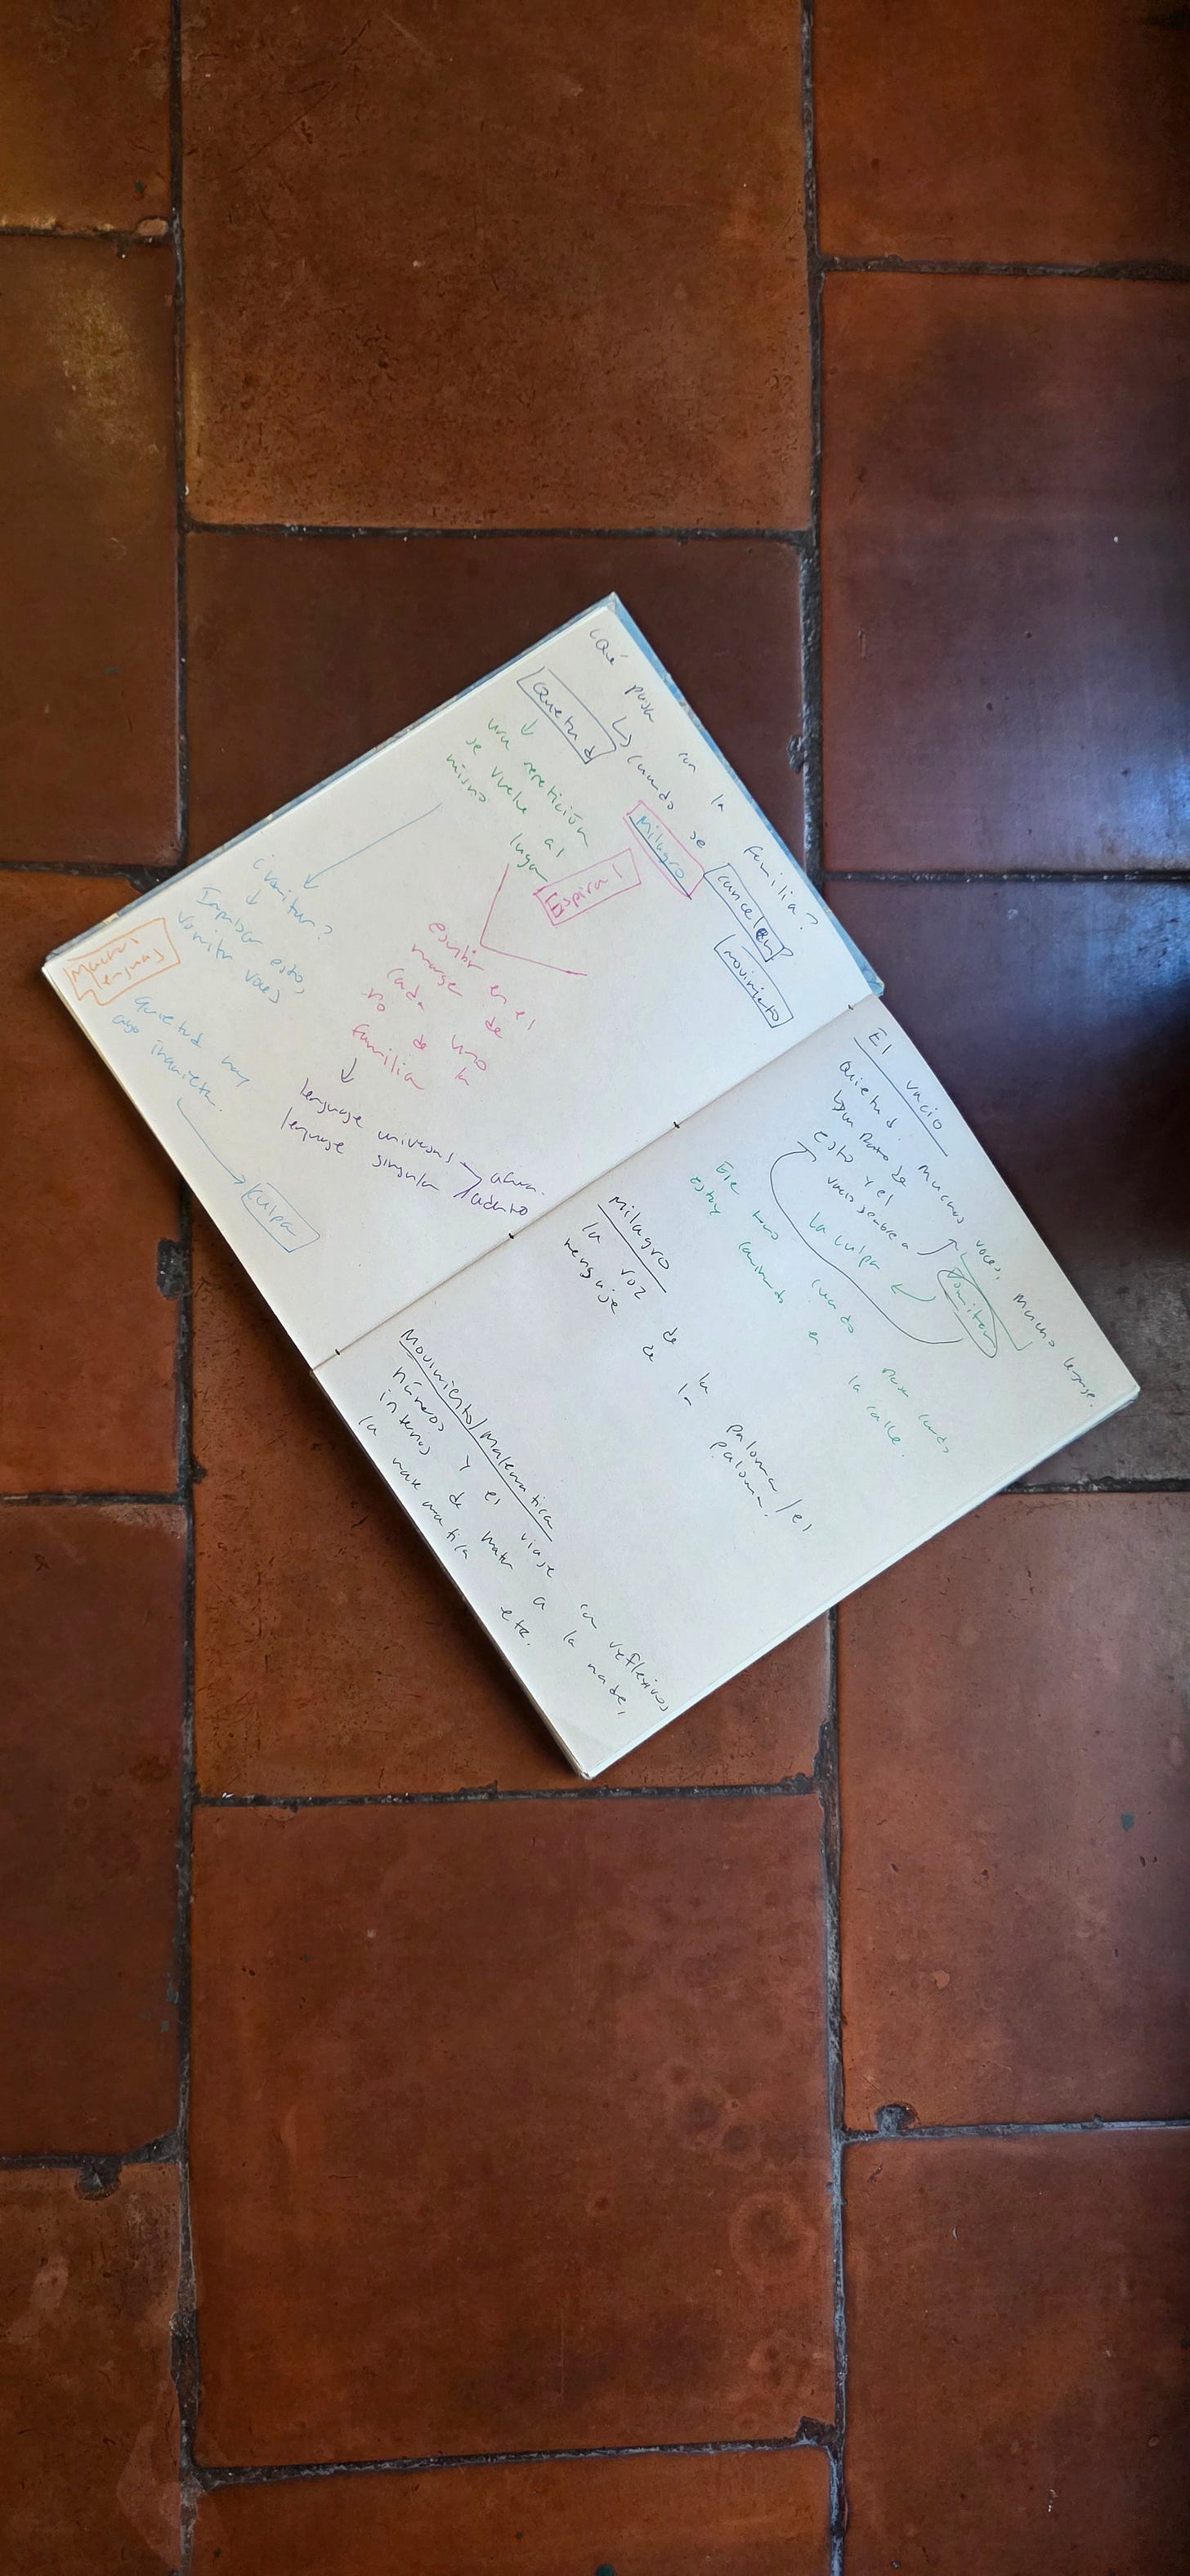 ¿Qué pasa con la familia?
↳ cuando se cancelan
Quietud
Milagro
movimiento
↓
una repetición
se vuelve al
mismo lugar
Espiral
¿Vomitar?
↓
esto,
vomitar voces
escribir en el
cada uno
de la
familia
↓
lenguaje universal
lenguaje singular
adentro
Muchas
lenguas
quietud muy
inquieta.
Culpa
El vacío
Quietud. Muchas voces, mucho lenguaje.
esto y el
vacío
vomitar
la culpa
Ese cuando
estoy caminando en la calle.
Milagro
la voz de la paloma/el
lenguaje de la paloma.
Movimiento/Matemática
números y el viaje con reflexivos
internos de matar a la madre,
la matemática etc.